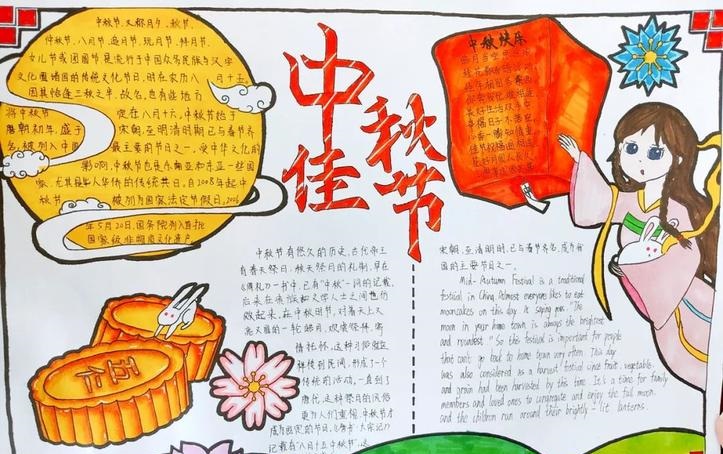 中秋佳节
中秋节,又称月夕、秋节、
仲秋节、八月节、追月节、玩月节、拜月节、
女儿节或团圆节是流行于中国众多民族与汉字
文化圈诸国的传统文化节日,时在农历八月十五;
因其恰值三秋之半,故名,也有些地方
将中秋节定在八月十六,中秋节始于
唐朝初年,盛于宋朝,至明清时期已与春节齐
名,被列入中国最主要的节日之一,受中华文化的
影响,中秋节也是东南亚和东亚一些国
家,尤其是华人华侨的传统节日,自2008年起中秋
节被列为国家法定节假日,2006
年5月20日,国务院列入首批
国家级非物质文化遗产。
中秋快乐
中秋节有悠久的历史,古代帝王
有春天祭日,秋天祭月的礼制,早在
《周礼》一书中,已有“中秋”一词的记载,
后来在贵族和文学人士之间也仿
效起来,在中秋时节,对着天上又
亮又圆的一轮皓月,观赏祭拜,寄
情托怀,这种习俗就这
样传到民间,形成了一个
传统的活动,一直到了
唐代,这种祭月的风俗
更为人们重视,中秋节才
成为固定的节日,《唐书·太宗记》
记载有“八月十五中秋节”,这
宋朝,至清明时,已与春节齐名,成为我
国的主要节日之一。
Mid-Autumn Festival is a traditional
festival in China. Almost everyone likes to eat
mooncakes on this day. It saying goes, "The
moon in your home town is always the brightest
and roundest." So this festival is important for people
that can't go back to home town very often. This day
was also considered as a harvest festival since fruit, vegetable,
and grain had been harvested by this time. It is a time for family
members and loved ones to congregate and enjoy the full moon.
and the children run around their brightly-lit lanterns.